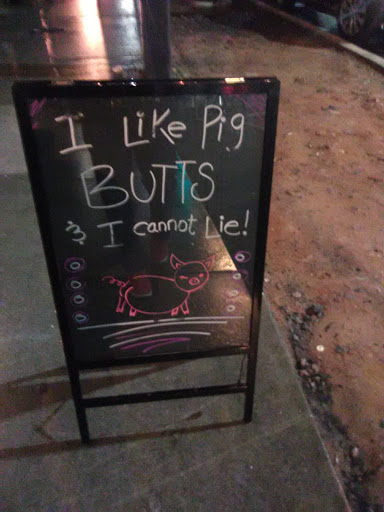 I Like Pig
BUTTS
& I cannot Lie!